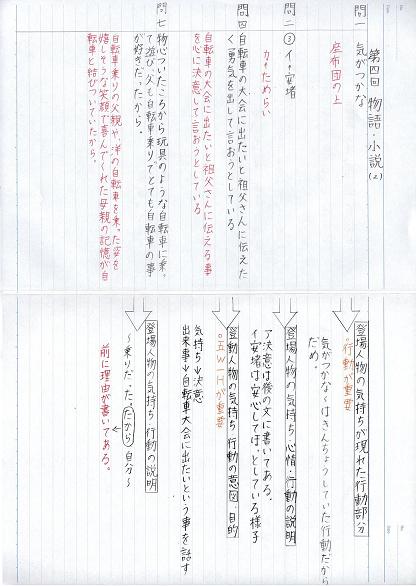 第四回 物語・小説(2)
問一 気がつかな
座布団の上
問二 ③イ・安堵
カ・ためらい
問四 自転車の大会に出たいと祖父さんに伝えた
く勇気を出して言おうとしている
自転車の大会に出たいと祖父さんに伝える事
を心に決意して言おうとしている
問七 物心ついたころから玩具のような自転車に乗
って遊び、父も自転車乗りでとても自転車の事
が好きだったから。
自転車乗りの父親や、洋の自転車を乗った姿を
嬉しそうな笑顔で喜んでくれた母親の記憶が自
転車と結びついていたから。
登場人物の気持ちが現れた行動部分
・行動が重要
気がつかな〜はきんちょうしていた行動だから
だめ。
登場人物の気持ち 心情・行動の説明
ア決意は後の文に書いてある。
イ安堵は安心してほっとしている様子
登動人物の気持ち 行動の意図 目的
・五W一Hが重要
気持ち→決意
出来事→自転車大会に出たいという事を話す
登場人物の気持ち 行動の説明
〜乗りだった。だから自分〜
前に理由が書いてある。